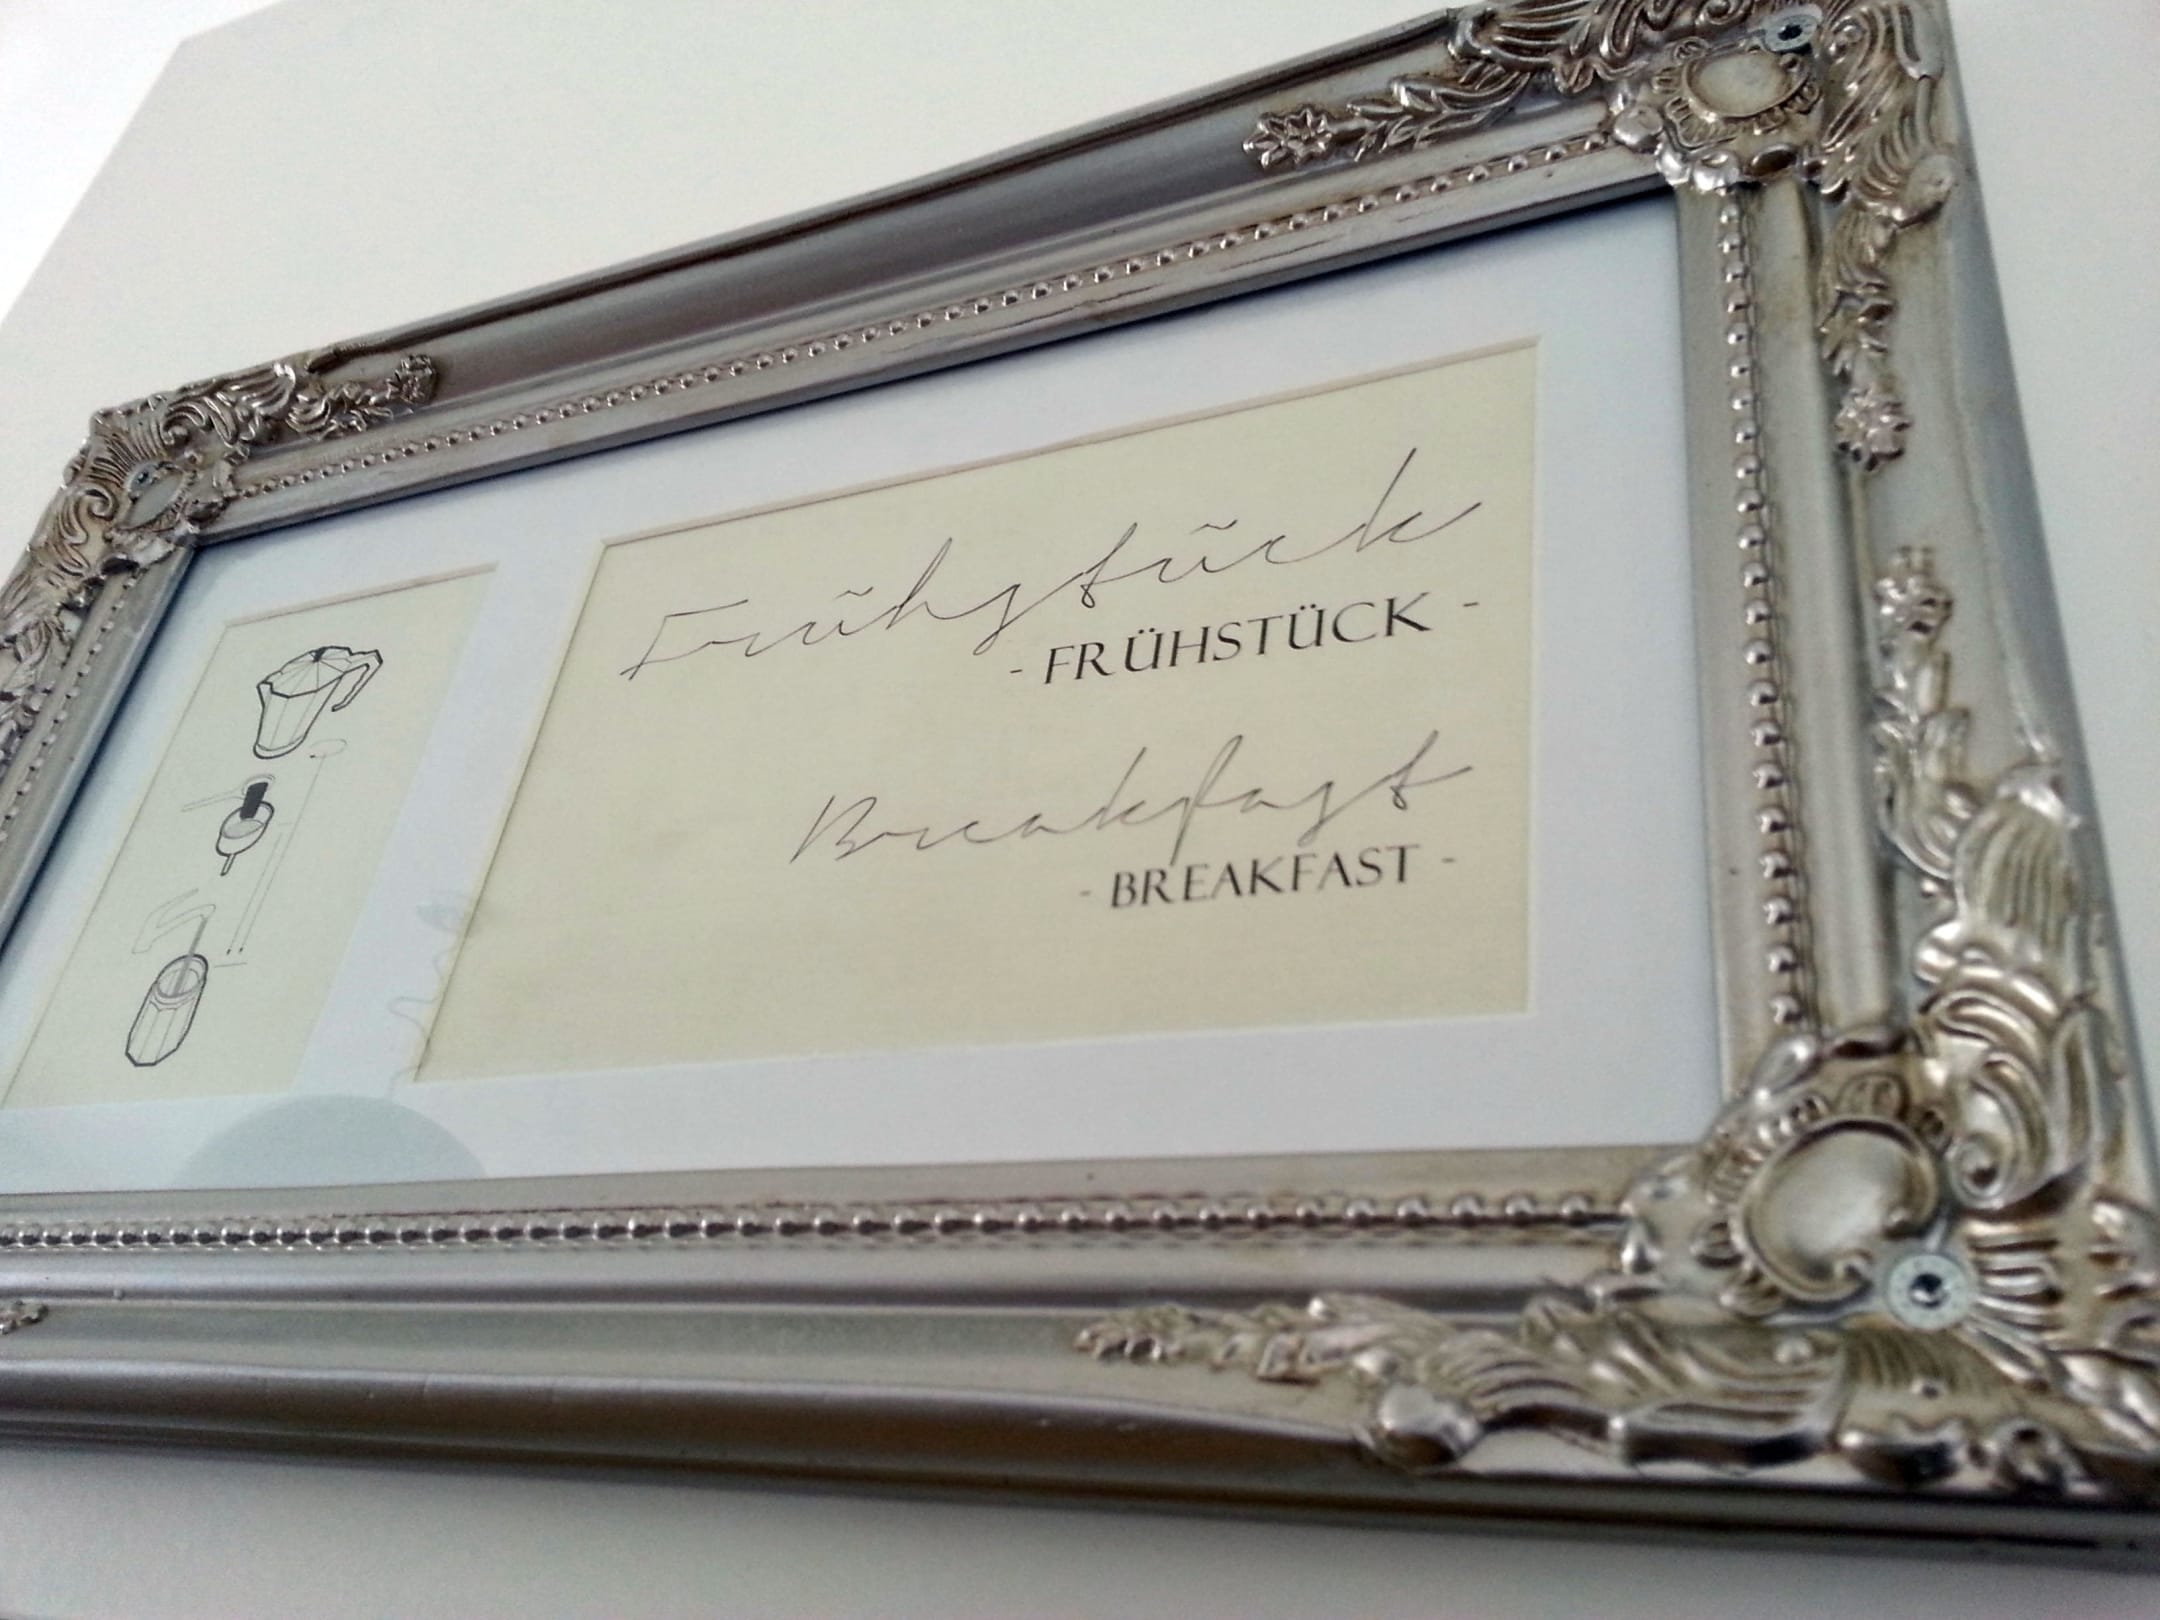 Frühstück
- FRÜHSTÜCK -
Breakfast
- BREAKFAST -